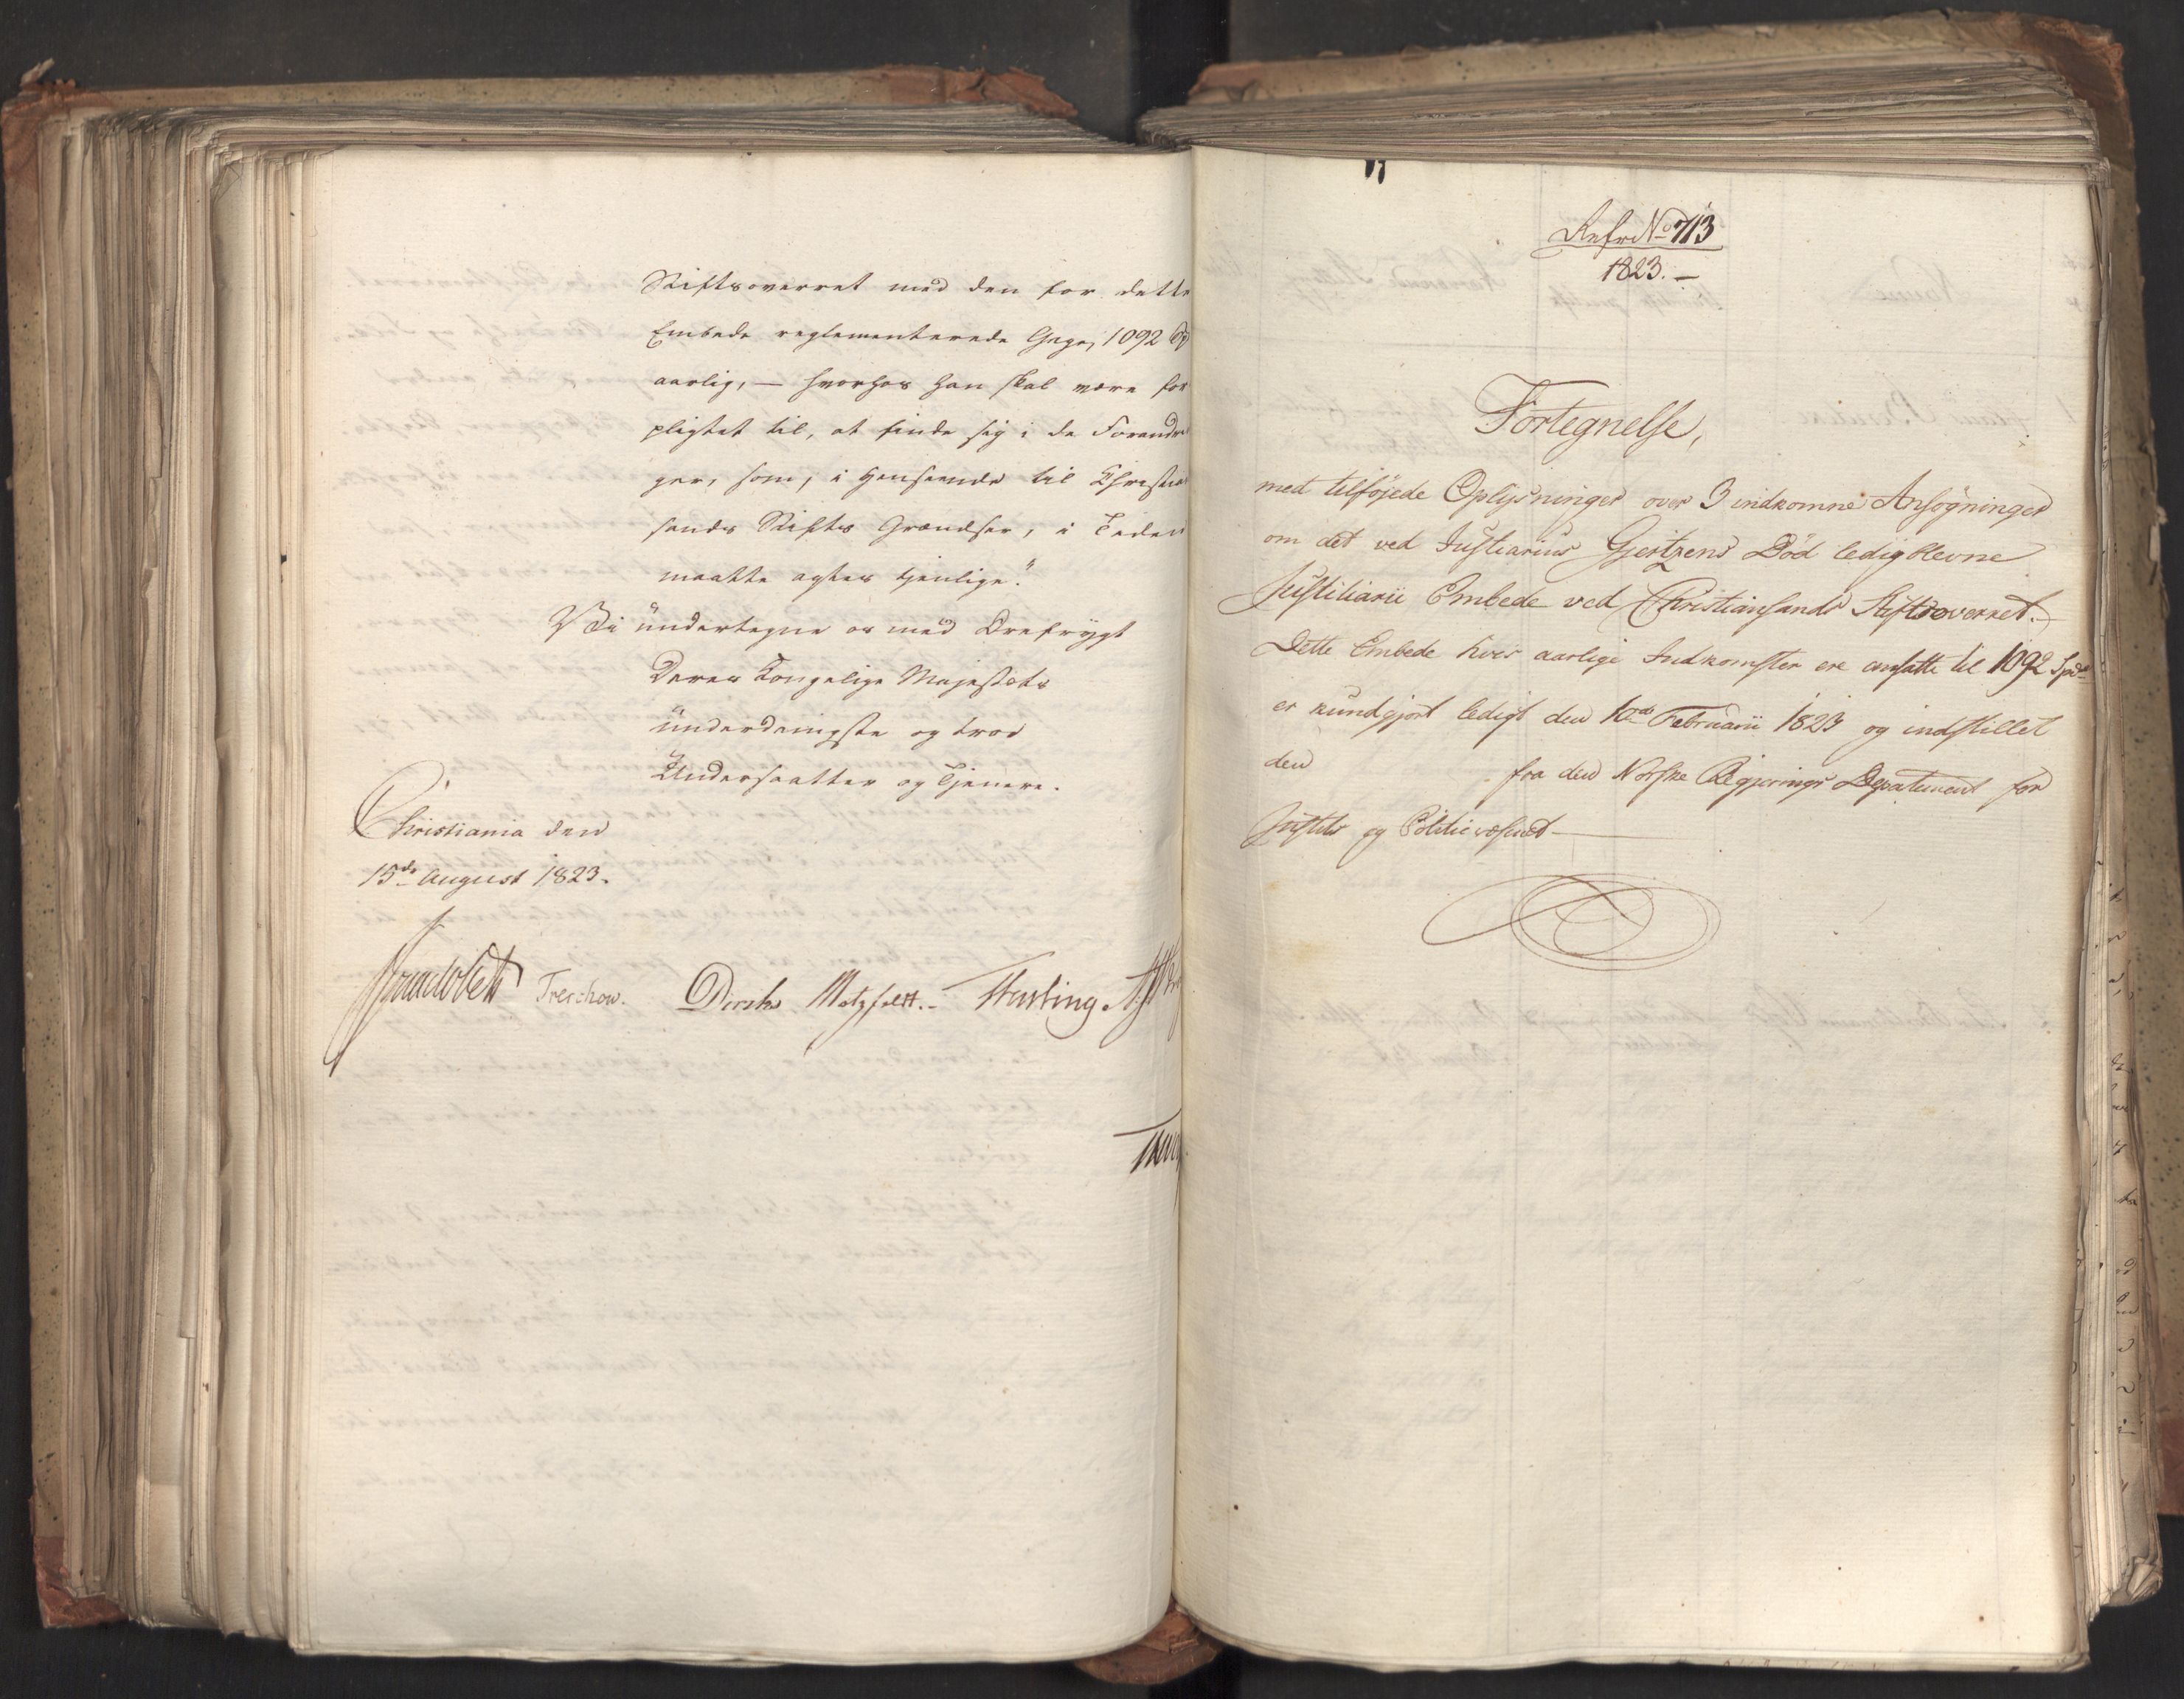 Stiftsoverret med den for dette
Embede reglementerede Gage, 1092 Sp
aarlig, — hvorhos han skal være for
pligtet til, at finde sig i de Forandrin
ger, som, i Henseende til Christian
sands Stifts Grændser, i Tiden
maatte agtes tjenlige."
Vi undertegne os med Ærefrygt
Deres Kongelige Majestæts
underdanigste og troe
Undersaatter og Tjenere.
Christiania den
15de August 1823.
Treschow. Diriks Motzfeldt. Fasting
Refr. No 713
1823. —
Fortegnelse,
med tilføjede Oplysninger over 3 indkomne Ansøgninger
om det ved Justiarius Gjertzens Död ledigblevne
Justitiarii Embede ved Christiansands Stiftsoverret. —
Dette Embede hvis aarlige Indkomster ere ansatte til 1092 Spd
er kundgjort ledigt den Februarii 1823 og indstillet
den fra den Norske Regjerings Departement for
Justits og Politievæsenet —